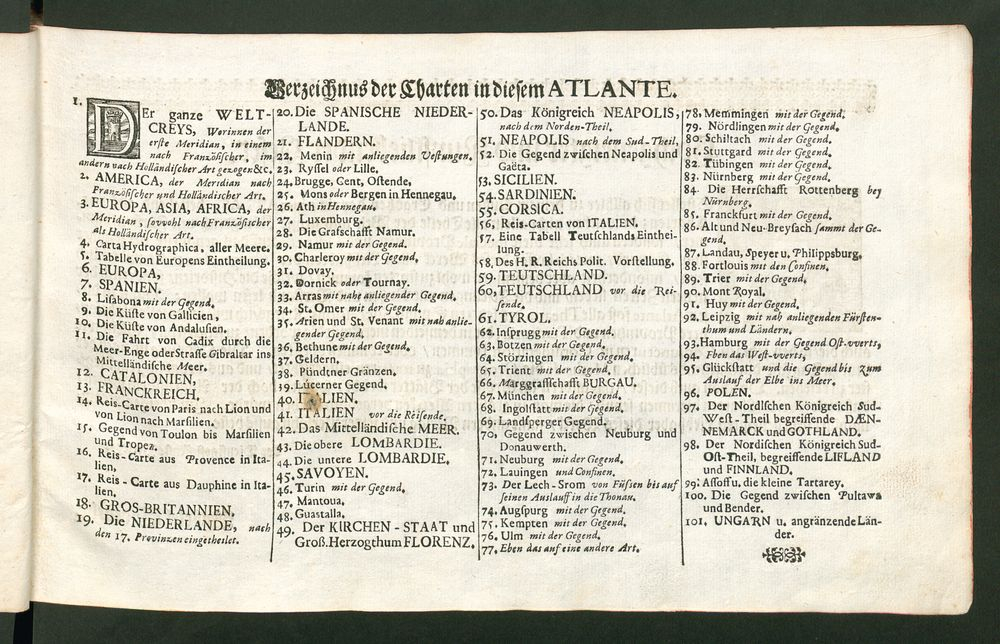 Verzeichnus der Charten in diesem ATLANTE.
1. DEr ganze WELT-
CREYS, Worinnen der
erste Meridian, in einem
nach Französischer, im
andern nach Holländischer Art gezogen &c.
2. AMERICA, der Meridian nach
Französischer und Holländischer Art.
3. EUROPA, ASIA, AFRICA, der
Meridian, sowohl nach Französischer
als Holländischer Art.
4. Carta Hydrographica, aller Meere.
5. Tabelle von Europens Eintheilung.
6. EUROPA,
7. SPANIEN.
8. Lisabona mit der Gegend.
9. Die Küste von Gallicien,
10. Die Küste von Andalusien.
11. Die Fahrt von Cadix durch die
Meer-Enge oder Strasse Gibraltar ins
Mittelländische Meer.
12. CATALONIEN,
13. FRANCKREICH.
14. Reis-Carte von Paris nach Lion und
von Lion nach Marsilien.
15. Gegend von Toulon bis Marsilien
und Tropez.
16. Reis-Carte aus Provence in Ita-
lien,
17. Reis-Carte aus Dauphine in Ita-
lien.
18. GROS-BRITANNIEN,
19. Die NIEDERLANDE, nach
den 17. Provinzen eingetheilet.
20. Die SPANISCHE NIEDER-
LANDE.
21. FLANDERN.
22. Menin mit anliegenden Vestungen.
23. Ryssel oder Lille.
24. Brugge, Gent, Ostende,
25. Mons oder Bergen in Hennegau,
26. Ath in Hennegau,
27. Luxemburg.
28. Die Grafschafft Namur.
29. Namur mit der Gegend.
30. Charleroy mit der Gegend,
31. Dovay.
32. Dornick oder Tournay.
33. Arras mit nahe anliegender Gegend,
34. St. Omer mit der Gegend.
35. Arien und St. Venant mit nah anlie-
gender Gegend.
36. Bethune mit der Gegend.
37. Geldern.
38. Pündtner Gränzen.
39. Lucerner Gegend.
40. ITALIEN.
41. ITALIEN vor die Reisende.
42. Das Mittelländische MEER.
43. Die obere LOMBARDIE.
44. Die untere LOMBARDIE.
45. SAVOYEN.
46. Turin mit der Gegend.
47. Mantoua.
48. Guastalla.
49. Der KIRCHEN-STAAT und
Groß.Herzogthum FLORENZ.
50. Das Königreich NEAPOLIS,
nach dem Norden-Theil.
51. NEAPOLIS nach dem Sud-Theil,
52. Die Gegend zwischen Neapolis und
Gaëta.
53. SICILIEN.
54. SARDINIEN.
55. CORSICA.
56. Reis-Carten von ITALIEN.
57. Eine Tabell Teutschlands Einthei-
lung.
58. Des H. R. Reichs Polit. Vorstellung,
59. TEUTSCHLAND.
60, TEUTSCHLAND vor die Rei-
sende.
61. TYROL.
62. Insprugg mit der Gegend.
63. Botzen mit der Gegend.
64. Störzingen mit der Gegend.
65. Trient mit der Gegend.
66. Marggrafschafft BURGAU.
67. München mit der Gegend.
68. Ingolstatt mit der Gegend.
69. Landsperger Gegend.
70, Gegend zwischen Neuburg und
Donauwerth.
71. Neuburg mit der Gegend.
72. Lauingen und Confinen.
73. Der Lech-Strom von Füssen bis auf
seinen Auslauff in die Thonau.
74. Augspurg mit der Gegend.
75. Kempten mit der Gegend.
76. Ulm mit der Gegend.
77. Eben das auf eine andere Art.
78. Memmingen mit der Gegend.
79. Nördlingen mit der Gegend.
80. Schiltach mit der Gegend.
81. Stuttgard mit der Gegend.
82. Tübingen mit der Gegend.
83. Nürnberg mit der Gegend.
84. Die Herrschafft Rottenberg bey
Nürnberg.
85. Franckfurt mit der Gegend.
86. Alt und Neu-Breysach sammt der Ge-
gend,
87. Landau, Speyer u. Philippsburg.
88. Fortlouis mit den Confinen.
89. Trier mit der Gegend.
90. Mont Royal.
91. Huy mit der Gegend.
92. Leipzig mit nah anliegenden Fürsten-
thum und Ländern.
93. Hamburg mit der Gegend Ost-werts,
94. Eben das West-werts,
95. Glückstatt und die Gegend bis zum
Auslauf der Elbe ins Meer.
96. POLEN.
97. Der Nordischen Königreich Sud-
West-Theil begreiffende DÆN-
NEMARCK und GOTHLAND.
98. Der Nordischen Königreich Sud-
Ost-Theil, begreiffende LIFLAND
und FINNLAND.
99. Assoffu, die kleine Tartarey.
100. Die Gegend zwischen Pultawa
und Bender.
101. UNGARN u. angränzende Län-
der.